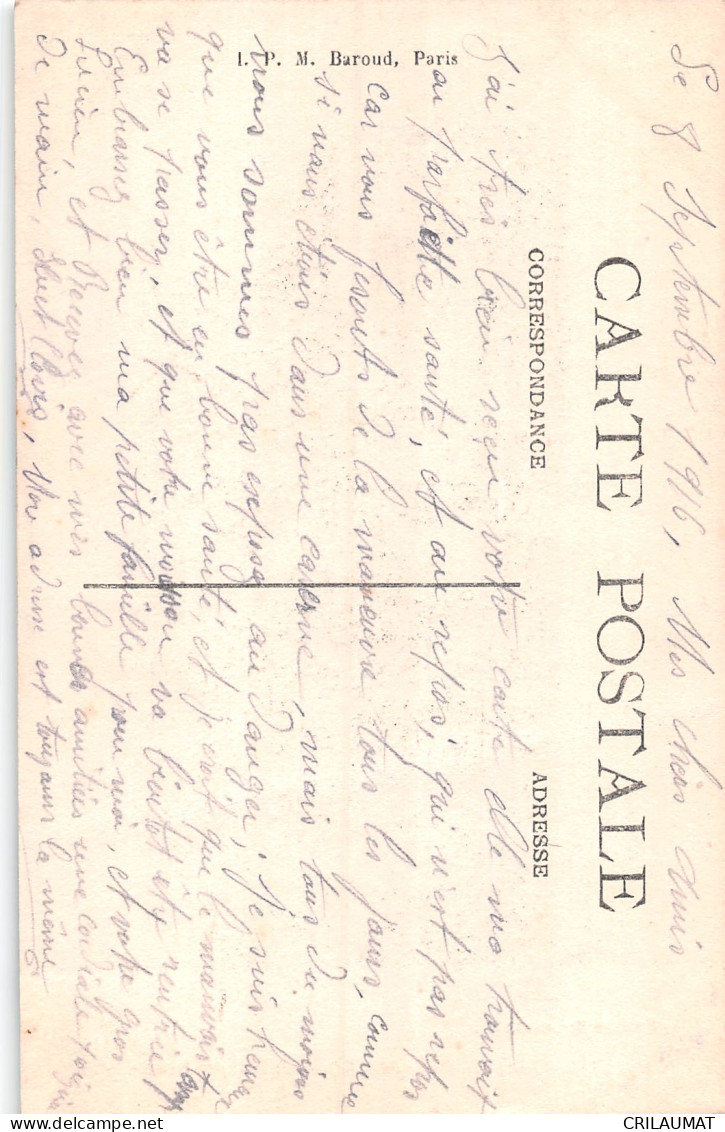 I. P. M. Baroud, Paris
CARTE POSTALE
CORRESPONDANCE
ADRESSE
Le 8 Septembre 1916, Mes chers Amis
J'ai très bien reçu votre carte elle ma trouvait
en parfaitte santé, et au repos, qui n'est pas repos
car vous fesonts de la manœuvre tous les jours, comme
si nous étions dans une caserne, mais tous du moins
nous sommes pas exposez au danger; Je suis heureux
que vous être en bonne santé, et je croit que le mauvais temps
va se passer, et que votre moisson va bientôt etre rentrie,
Embrassez bien ma petite famille pour moi, et votre gros
Lucien, et Recevez avec mes bonnes amitiées une cordiale poignée
de main, Clovis, Mon adresse est toujours la même
CRILAUMAT